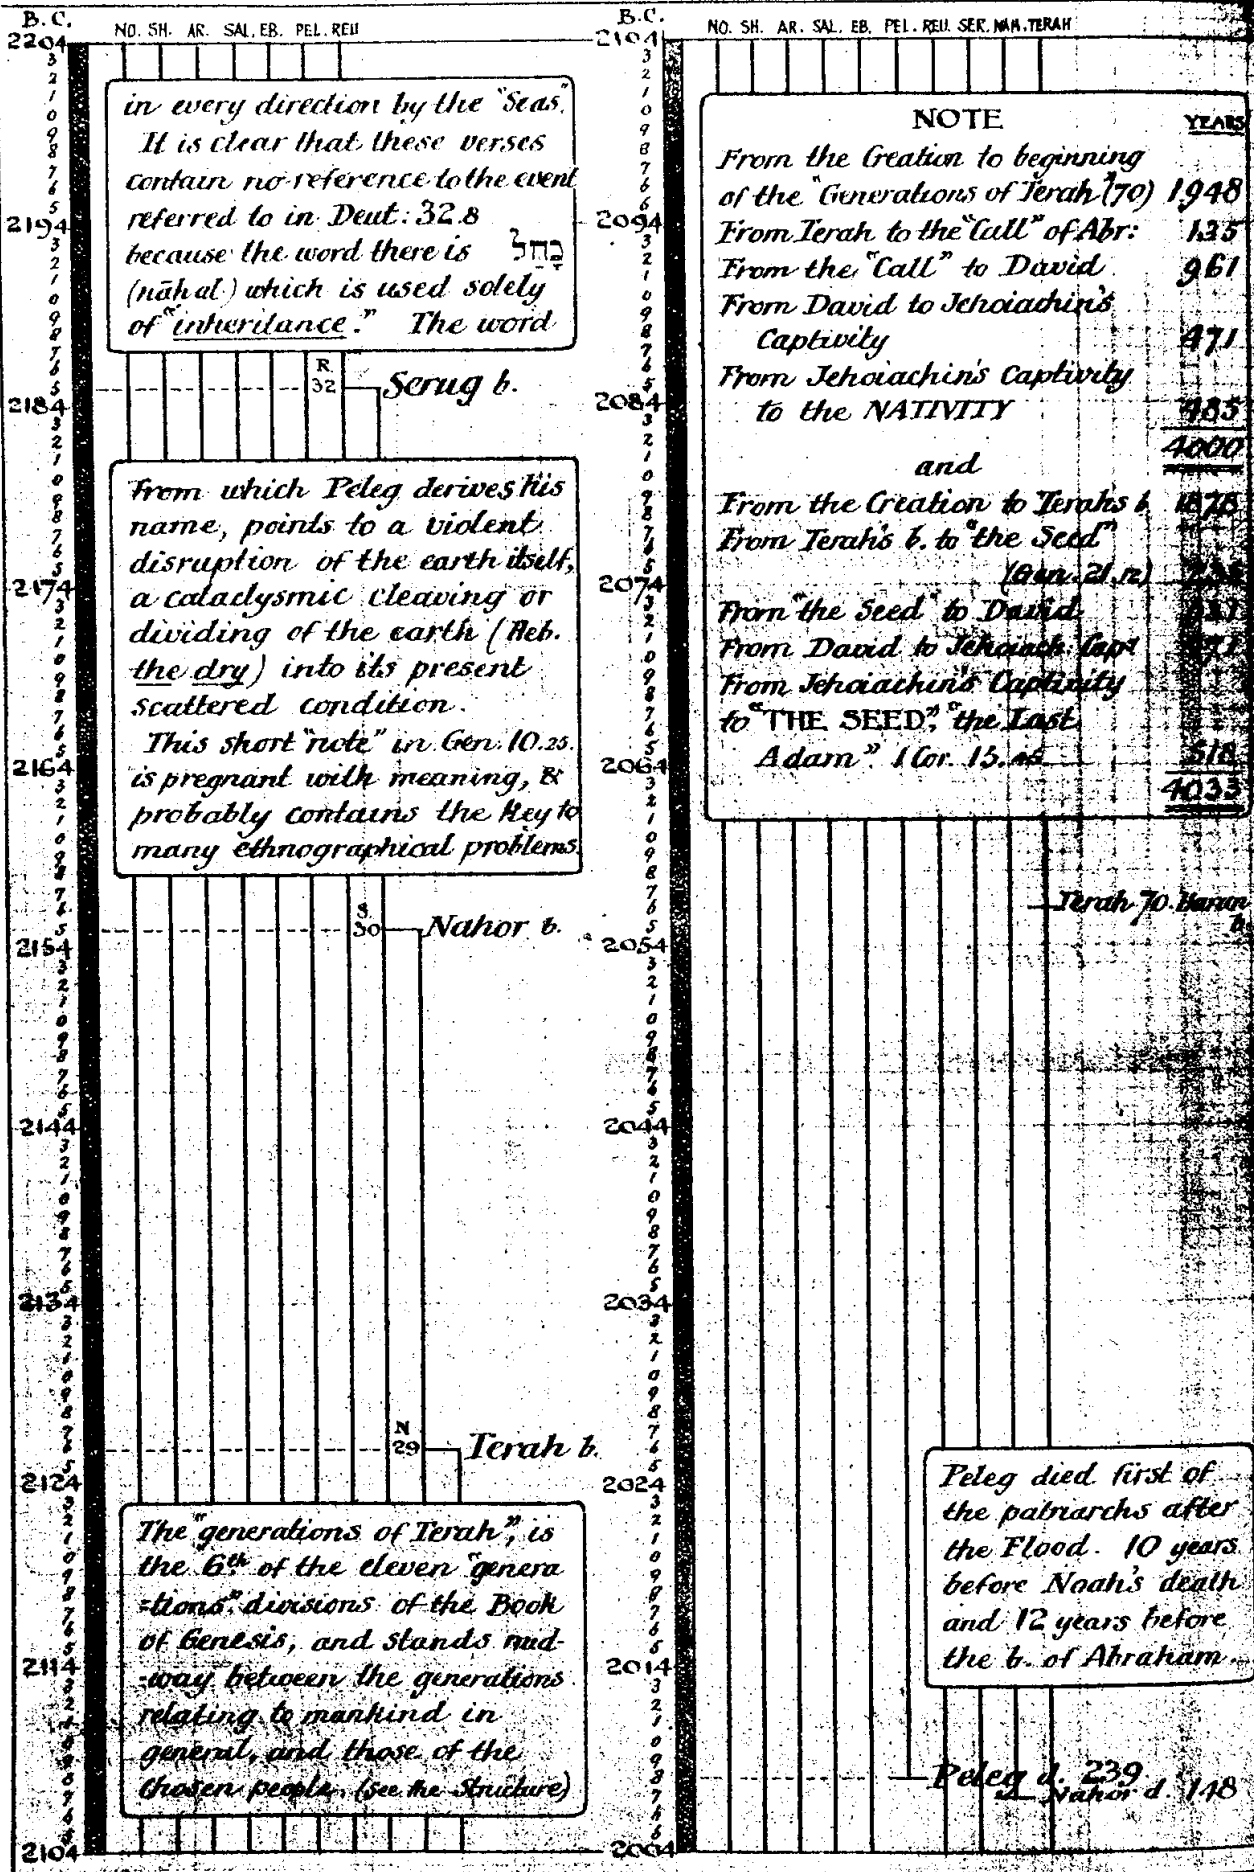 B.C.
2204
NO. SH. AR. SAL. EB. PEL. REU
in every direction by the "Seas".
It is clear that these verses
contain no reference to the event
referred to in Deut: 32.8
because the word there is נָחַל
(nāhal) which is used solely
of "inheritance." The word
2194
R. 32 Serug b.
2184
from which Peleg derives his
name, points to a violent
disruption of the earth itself,
a cataclysmic cleaving or
dividing of the earth (Heb.
the dry) into its present
scattered condition.
This short "note" in Gen. 10.25.
is pregnant with meaning, &
probably contains the key to
many ethnographical problems.
2174
2164
S. 30 Nahor b.
2154
2144
2134
N 29 Terah b.
2124
The "generations of Terah", is
the 6th of the eleven "genera
=tions" divisions of the Book
of Genesis, and stands mid-
-way between the generations
relating to mankind in
general, and those of the
chosen people. (see the Structure)
2114
2104
B.C.
2104
NO. SH. AR. SAL. EB. PEL. REU. SER. NAH. TERAH
NOTE YEARS
From the Creation to beginning
of the "Generations of Terah" (70) 1948
From Terah to the "Call" of Abr: 135
From the "Call" to David 961
From David to Jehoiachin's
Captivity 471
From Jehoiachin's Captivity
to the NATIVITY 485
4000
and
From the Creation to Terahs b. 1878
From Terah's b. to "the Seed"
(Gen. 21.12)
From "the Seed" to David
From David to Jehoiach: Capt
From Jehoiachin's Captivity
to "THE SEED", "the Last
Adam". 1 Cor. 15.45 518
4033
2094
2084
2074
2064
Terah 70. Haran
b.
2054
2044
2034
2024
Peleg died first of
the patriarchs after
the Flood. 10 years
before Noah's death
and 12 years before
the b. of Abraham
2014
Peleg d. 239
Nahor d. 148
2004